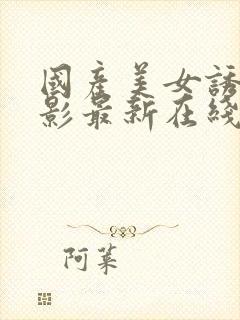 國產美女誘
影最新在綫
阿菜